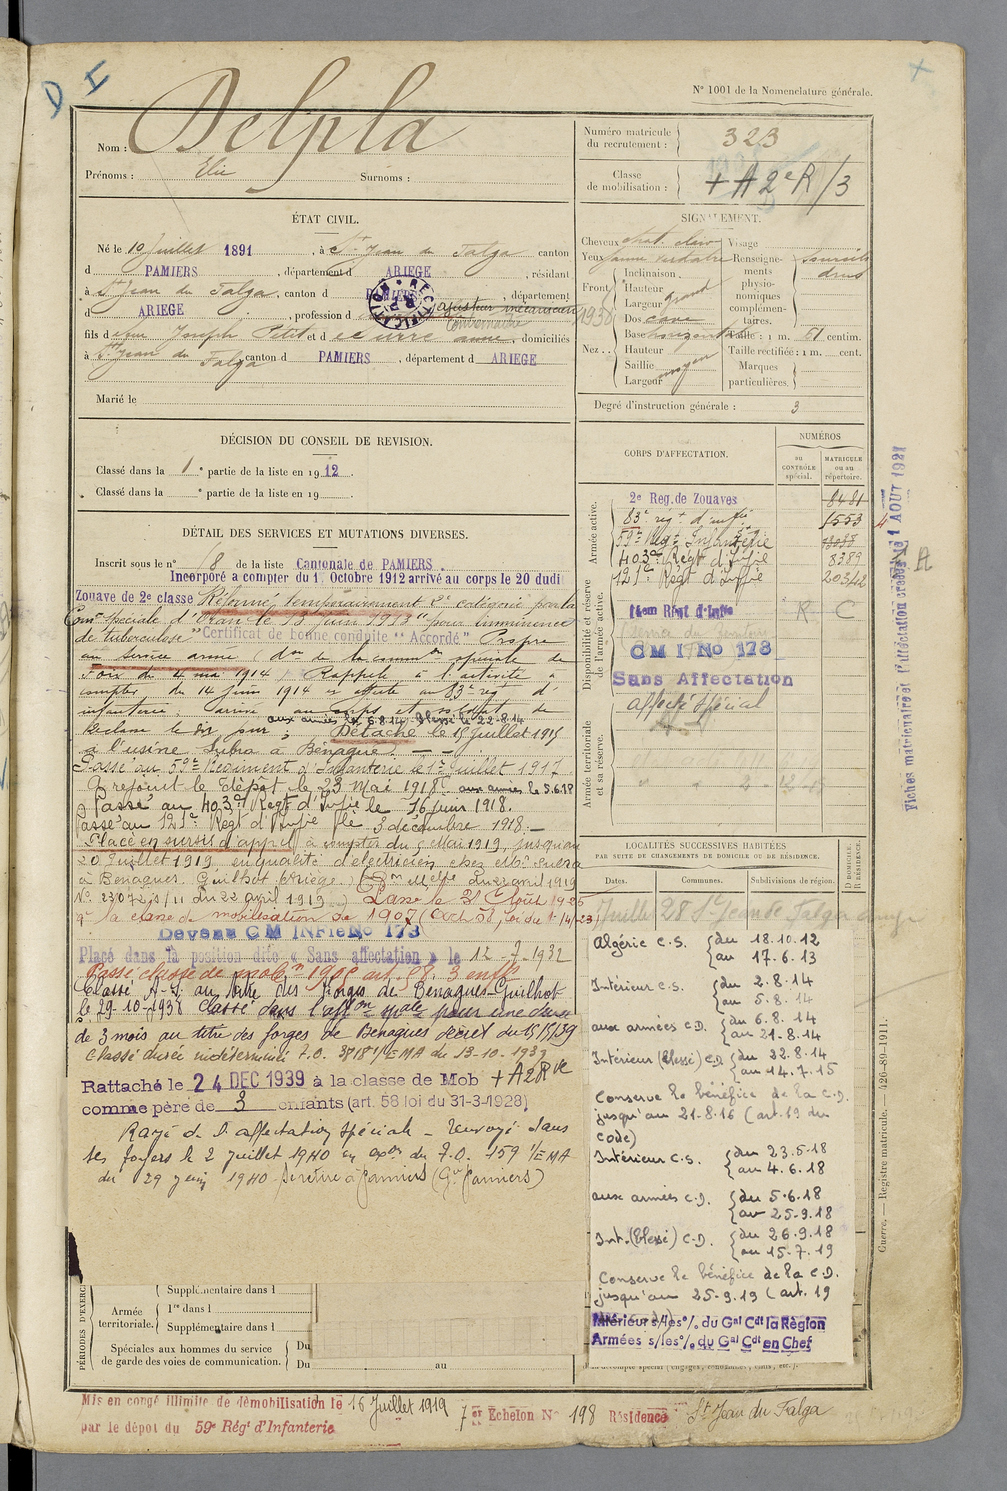 D I
N° 1001 de la Nomenclature générale.
Nom : Delpla
Prénoms : Elie Surnoms :
Numéro matricule du recrutement : 323
Classe de mobilisation : + A 2e R/3
ÉTAT CIVIL.
Né le 10 Juillet 1891, à St Jean du Falga canton
d PAMIERS, département d ARIEGE, résidant
à St Jean du Falga, canton d PAMIERS, département
d ARIEGE, profession d ajusteur mécanicien
RECTIFICATION
fils d Joseph Petit et d anne, domiciliés
à St Jean du Falga canton d PAMIERS, département d ARIEGE
Marié le
SIGNALEMENT.
Cheveux chat. clair Visage
Yeux jaune verdatre Renseignements physionomiques complémentaires. sourcils drus
Front Inclinaison.
Hauteur
Largeur grand
Nez . . Dos cave
Base horizontale Taille : 1 m. 61 centim.
Hauteur Taille rectifiée : 1 m. cent.
Saillie moyen Marques
Largeur particulières.
Degré d'instruction générale : 3
DÉCISION DU CONSEIL DE REVISION.
Classé dans la 1e partie de la liste en 1912.
Classé dans la e partie de la liste en 19
CORPS D'AFFECTATION.
NUMÉROS
au CONTRÔLE spécial.
MATRICULE ou au répertoire.
Armée active.
2e Reg. de Zouaves 8481
83e régt d'infie 1553
59e Régt Infanterie
403e Régt d'Infie 8389
121e Régt d'Infie 20342
Disponibilité et réserve de l'armée active.
14em Régt d'Infie R C
CMI No 173
Sans Affectation
Affecté spécial
Armée territoriale et sa réserve.
DÉTAIL DES SERVICES ET MUTATIONS DIVERSES.
Inscrit sous le n° 18 de la liste Cantonale de PAMIERS.
Incorporé a compter du 1 Octobre 1912 arrivé au corps le 20 dudi
Zouave de 2e classe Réformé temporairement 2e catégorie par la
Com° spéciale d'Oran le 13 Juin 1913 pour imminence
de tuberculose "Certificat de bonne conduite "Accordé" Propre
au service armé (don de la common spéciale de
Foix du 4 mai 1914 Rappelé à l'activité à
compter du 14 Juin 1914 et affecté au 83e régt d'
infanterie arrivé au corps et soldat de
2e classe le dit jour ; aux armées le 6.8.14, Blessé le 22-8-14
Détaché le 15 juillet 1915
à l'usine Jubra à Bénague.
Passé au 59e Régiment d'Infanterie le 1er Juillet 1917.
A rejoint le dépôt le 23 Mai 1918. aux armées le 5.6.18
Passé au 403e Régt d'Infie le 16 Juin 1918.
Passé au 121e Régt d'Infie le 3 décembre 1918.
Placé en sursis d'appel à compter du 5 Mai 1919, jusqu'au
20 Juillet 1919 en qualité d'électricien chez Mr
à Benagues Guilhot Ariège. (Don Melle du 22 avril 1919
N° 23072 s/11 du 22 avril 1919.) Passé le 31 Août 1925
à la classe de mobilisation de 1907 (art 58, loi du 1-14/23)
Devenu CM INFie No 173
Placé dans la position dite « Sans affectation » le 12-7-1932
Passé classe de mobon 1905 art. 58. 3 enfts
Classé A-S. au titre des Forges de Benagues-Guilhot
le 29-10-1938 Classé dans l'affon spale pour une durée
de 3 mois au titre des forges de Benagues décret du 15/5/39
Classé durée indéterminée F.O. 3718 1/EMA du 13-10-1939
Rattaché le 24 DEC 1939 à la classe de Mob + A2Rve
comme père de 3 enfants (art. 58 loi du 31-3-1928)
Rayé de l'affectation spéciale - Renvoyé dans
ses foyers le 2 juillet 1940 en exon du F.O. 159 1/EMA
du 29 juin 1940 - se retire à Pamiers (Gr Pamiers)
LOCALITÉS SUCCESSIVES HABITÉES
PAR SUITE DE CHANGEMENTS DE DOMICILE OU DE RÉSIDENCE.
Dates. Communes. Subdivisions de région. D DOMICILE. R RÉSIDENCE.
Juillet 28 St Jean du Falga
Algérie C.S. du 18.10.12
au 17.6.13
Intérieur C.S. du 2.8.14
au 5.8.14
aux armées C.D. du 6.8.14
au 21-8.14
Intérieur (Blessé) C.D. du 22.8.14
au 14.7.15
Conserve le bénéfice de la C.D.
jusqu'au 21-8-16 (art.19 du
code)
Intérieur C.S. du 23.5.18
au 4.6.18
aux armées C.D. du 5.6.18
au 25.9.18
Int.(blessé) C.D. du 26.9.18
au 15.7.19
Conserve le bénéfice de la C.D.
jusqu'au 25-9.19 (art. 19
Intérieur s/les % du Gal Cdt la Région
Armées s/les % du Gal Cdt en Chef
PÉRIODES D'EXERC
Armée territoriale.
Supplémentaire dans l
1re dans l
Supplémentaire dans l
Spéciales aux hommes du service de garde des voies de communication.
Du
Du au
Mis en congé illimité de démobilisation le 16 Juillet 1919 7er Échelon N° 198 Résidence St Jean du Falga
par le dépôt du 59e Régt d'Infanterie
Guerre. — Registre matricule. — 420-89-1911.
A